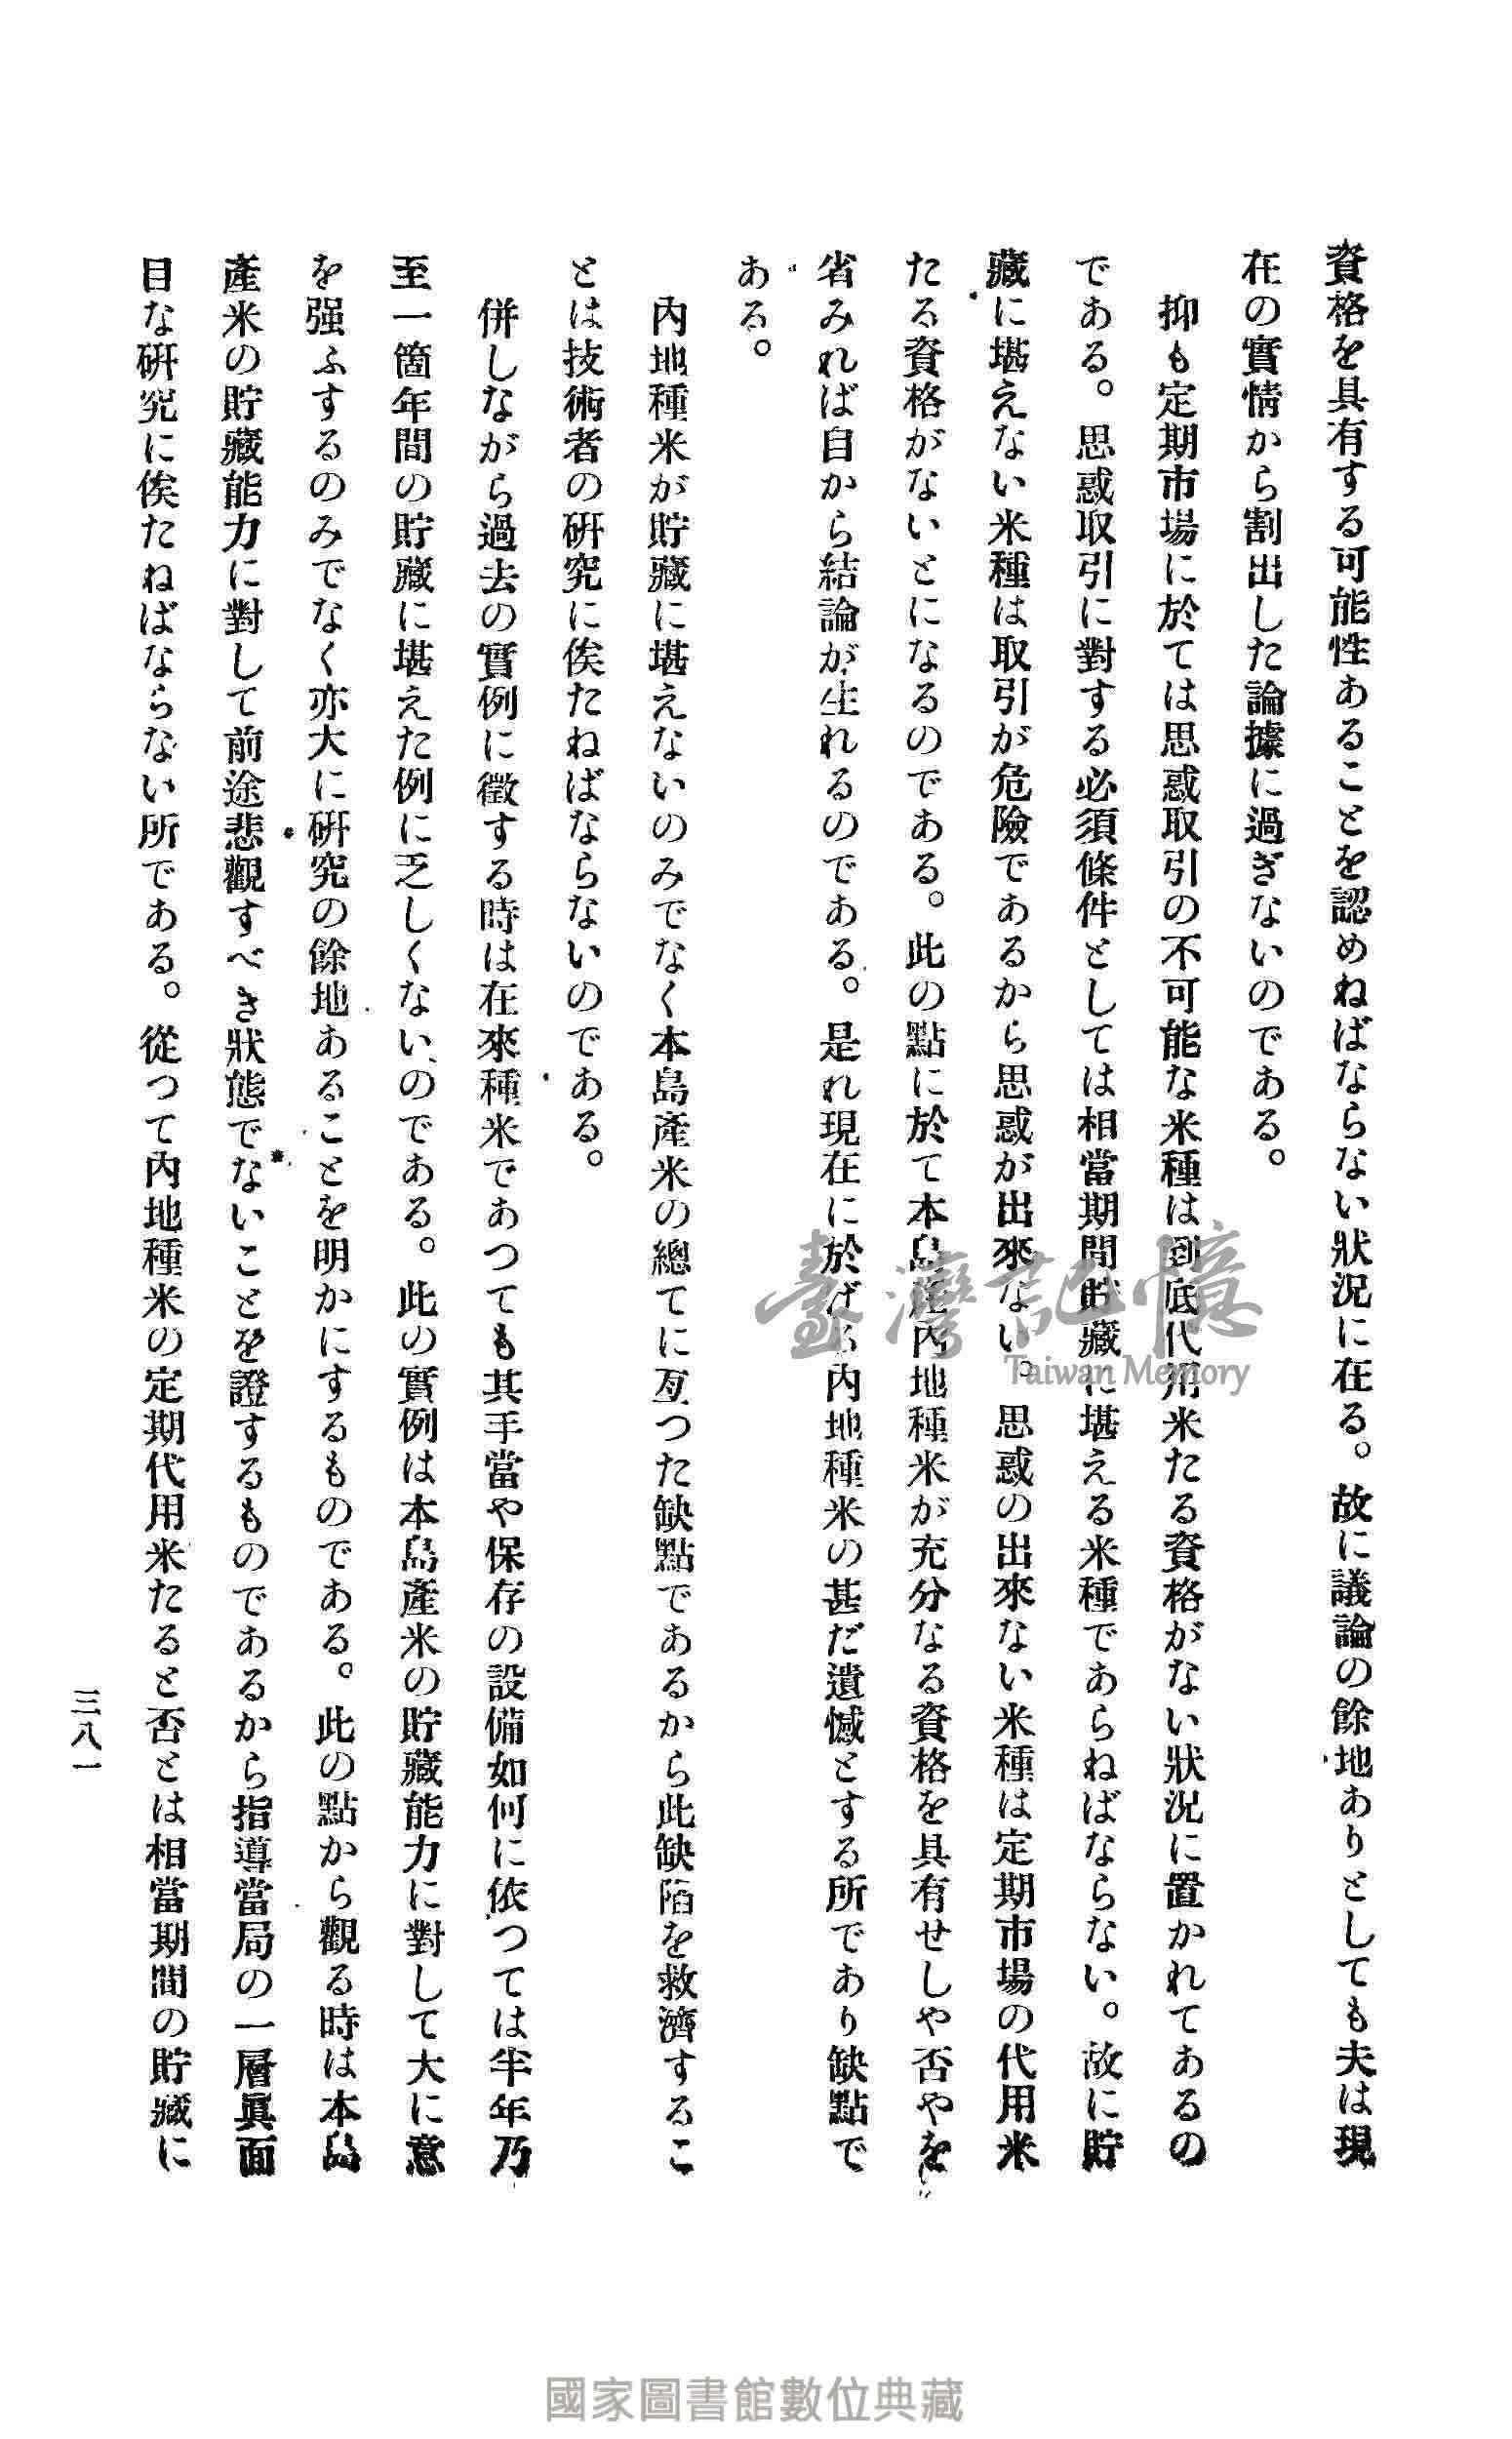 資格を具有する可能性あることを認めねばならない狀況に在る。故に議論の餘地ありとしても夫は現
在の實情から割出した論據に過ぎないのである。
抑も定期市場に於ては思惑取引の不可能な米種は到底代用米たる資格がない狀況に置かれてあるの
である。思惑取引に對する必須條件としては相當期間貯藏に堪える米種であらねばならない。故に貯
藏に堪えない米種は取引が危險であるから思惑が出來ない。思惑の出來ない米種は定期市場の代用米
たる資格がないとになるのである。此の點に於て本島產內地種米が充分なる資格を具有せしや否やを
省みれば自から結論が生れるのである。是れ現在に於ける內地種米の甚だ遺憾とする所であり缺點で
ある。
內地種米が貯藏に堪えないのみでなく本島產米の總てに亙つた缺點であるから此缺陷を救濟するこ
とは技術者の硏究に俟たねばならないのである。
併しながら過去の實例に徵する時は在來種米であつても其手當や保存の設備如何に依つては半年乃
至一箇年間の貯藏に堪えた例に乏しくないのである。此の實例は本島產米の貯藏能力に對して大に意
を强ふするのみでなく亦大に硏究の餘地あることを明かにするものである。此の點から觀る時は本島
產米の貯藏能力に對して前途悲觀すべき狀態でないことを證するものであるから指導當局の一層眞面
目な硏究に俟たねばならない所である。從つて內地種米の定期代用米たると否とは相當期間の貯藏に
三八一
臺灣記憶
Taiwan Memory
國家圖書館數位典藏